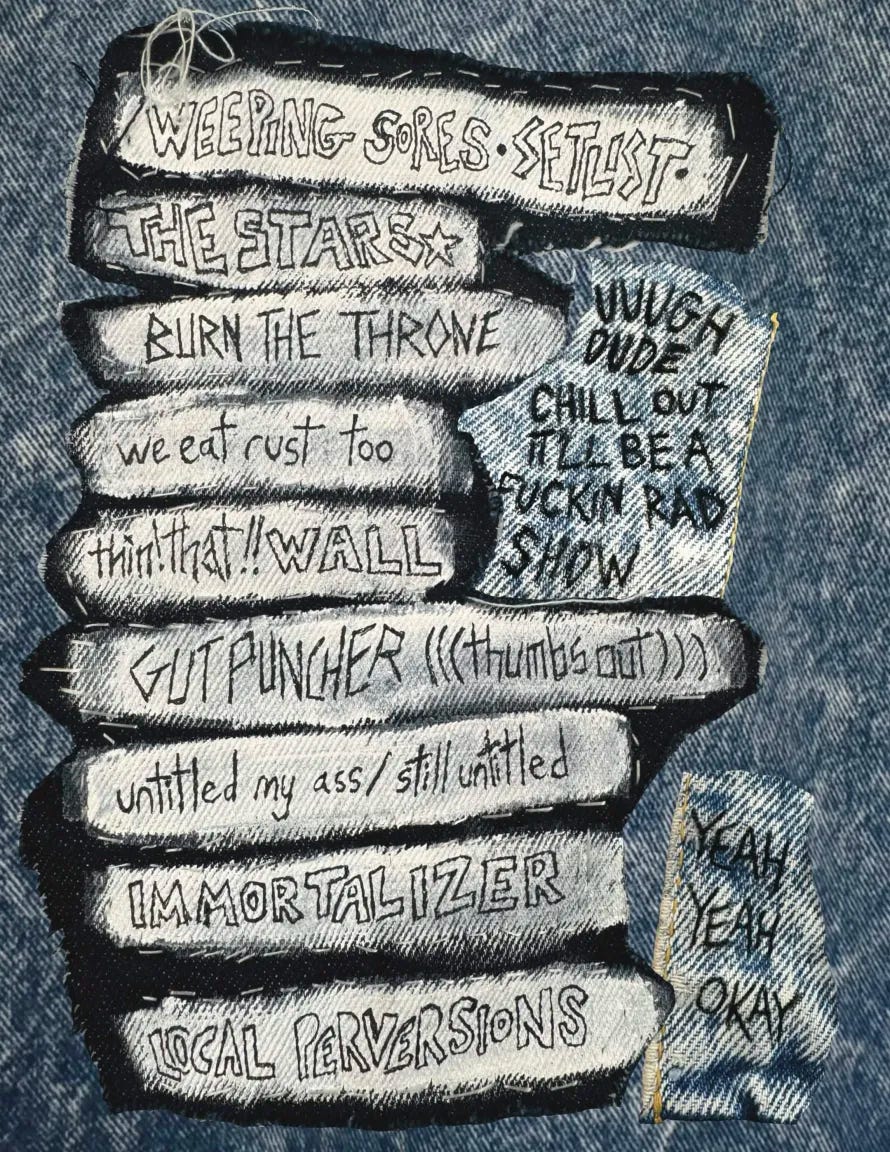 WEEPING SORES · SETLIST ·
THE STARS ☆
BURN THE THRONE
we eat rust too
thin! that!! WALL
GUTPUNCHER (((thumbs out)))
untitled my ass / still untitled
IMMORTALIZER
LOCAL PERVERSIONS
UUUGH
DUDE
CHILL OUT
IT'LL BE A
FUCKIN RAD
SHOW
YEAH
YEAH
OKAY